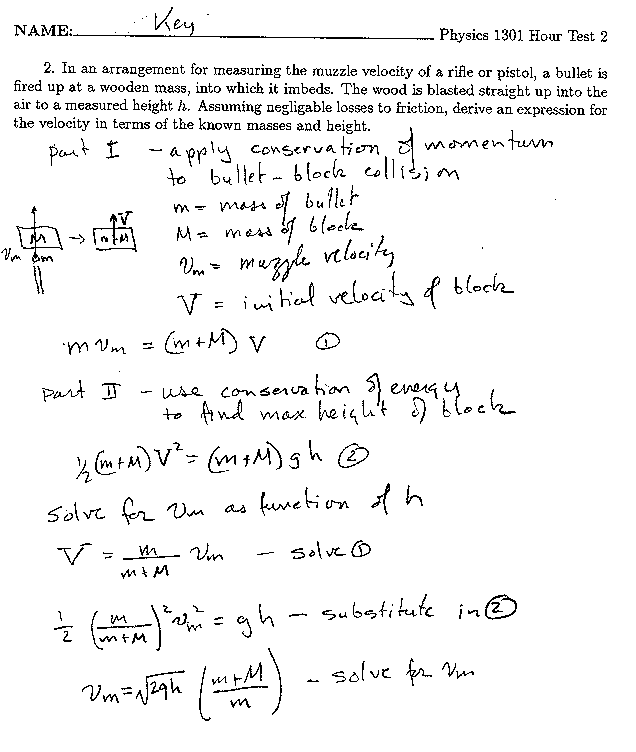 NAME: Key Physics 1301 Hour Test 2
2. In an arrangement for measuring the muzzle velocity of a rifle or pistol, a bullet is
fired up at a wooden mass, into which it imbeds. The wood is blasted straight up into the
air to a measured height h. Assuming negligable losses to friction, derive an expression for
the velocity in terms of the known masses and height.
part I - apply conservation of momentum
to bullet - block collision
m = mass of bullet
M = mass of block
v_m = muzzle velocity
V = initial velocity of block
M → m+M V
v_m m
m v_m = (m+M) V ①
part II - use conservation of energy
to find max height of block
½(m+M)V² = (m+M)gh ②
solve for v_m as function of h
V = m/(m+M) v_m - solve ①
1/2 (m/(m+M))² v_m² = gh - substitute in ②
v_m = √2gh ((m+M)/m) - solve for v_m